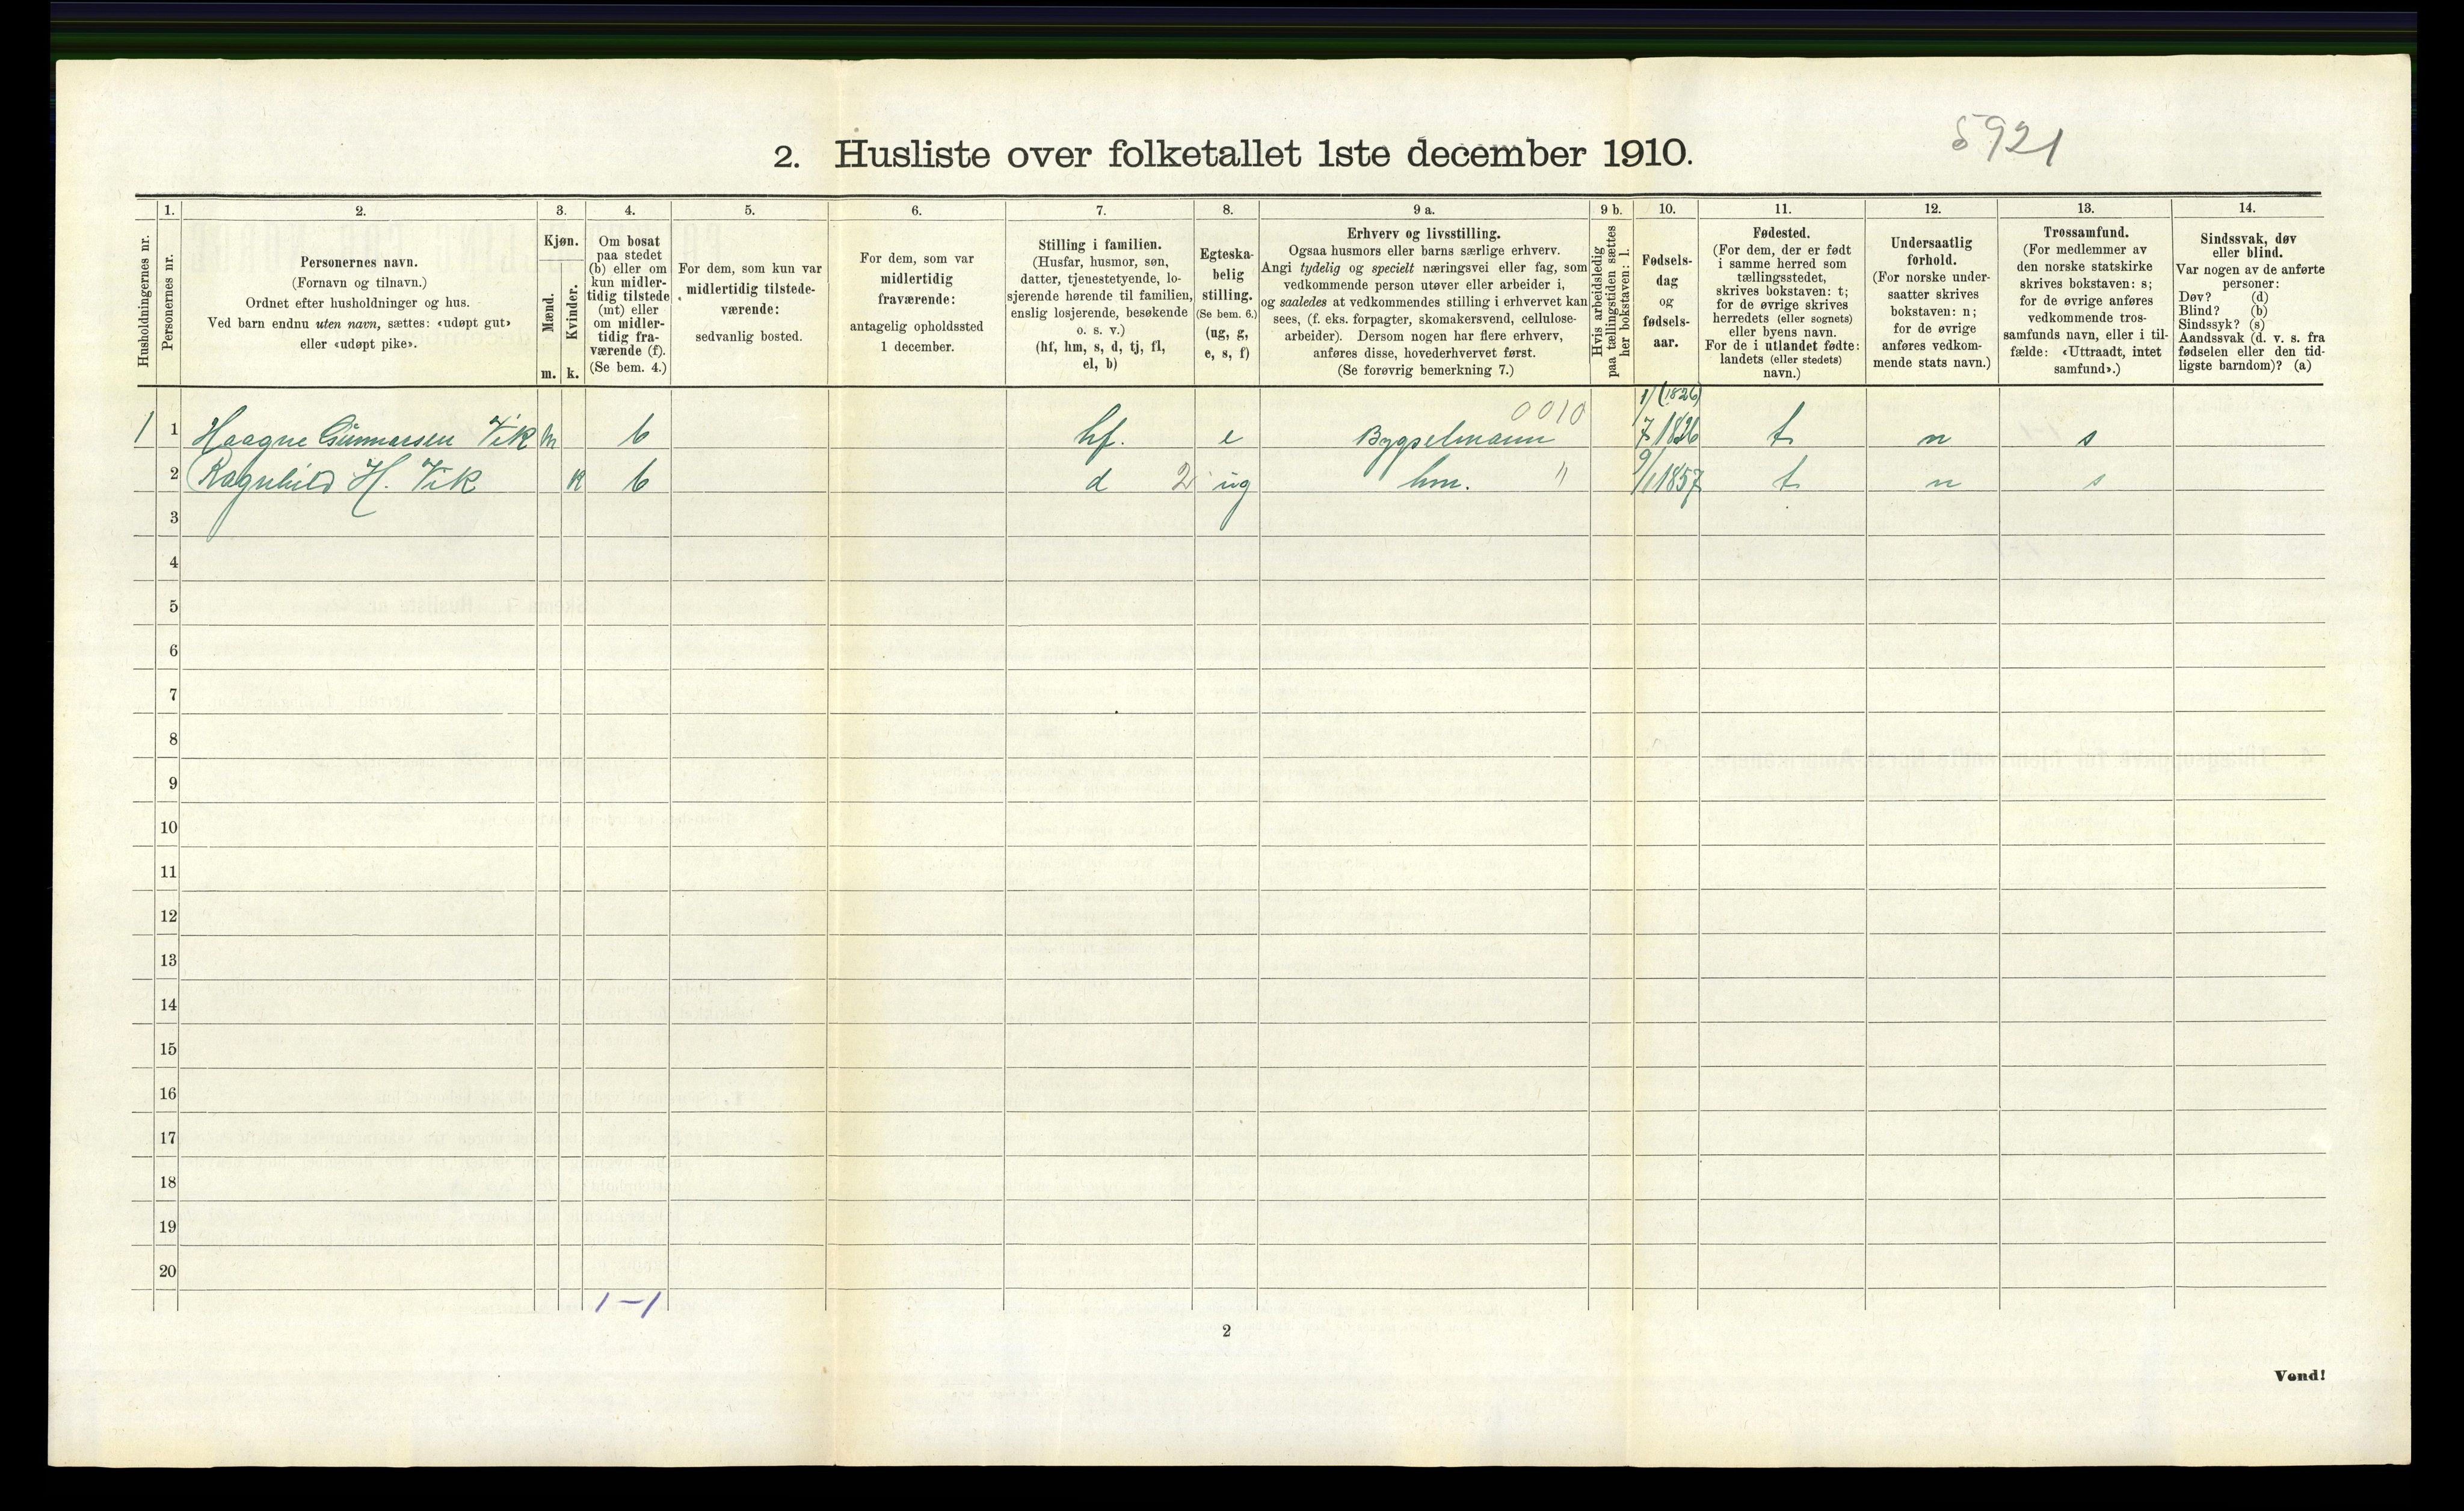 5921
2. Husliste over folketallet 1ste december 1910.
Husholdningernes nr.
1.
Personernes nr.
2.
Personernes navn.
(Fornavn og tilnavn.)
Ordnet efter husholdninger og hus.
Ved barn endnu uten navn, sættes: «udøpt gut»
eller «udøpt pike».
3.
Kjøn.
Mænd.
Kvinder.
m. k.
4.
Om bosat
paa stedet
(b) eller om
kun midler-
tidig tilstede
(mt) eller
om midler-
tidig fra-
værende (f).
(Se bem. 4.)
5.
For dem, som kun var
midlertidig tilstede-
værende:
sedvanlig bosted.
6.
For dem, som var
midlertidig
fraværende:
antagelig opholdssted
1 december.
7.
Stilling i familien.
(Husfar, husmor, søn,
datter, tjenestetyende, lo-
sjerende hørende til familien,
enslig losjerende, besøkende
o. s. v.)
(hf, hm, s, d, tj, fl,
el, b)
8.
Egteska-
belig
stilling.
(Se bem. 6.)
(ug, g,
e, s, f)
9 a.
Erhverv og livsstilling.
Ogsaa husmors eller barns særlige erhverv.
Angi tydelig og specielt næringsvei eller fag, som
vedkommende person utøver eller arbeider i,
og saaledes at vedkommendes stilling i erhvervet kan
sees, (f. eks. forpagter, skomakersvend, cellulose-
arbeider). Dersom nogen har flere erhverv,
anføres disse, hovederhvervet først.
(Se forøvrig bemerkning 7.)
9 b.
Hvis arbeidsledig
paa tællingstiden sættes
her bokstaven: l.
10.
Fødsels-
dag
og
fødsels-
aar.
11.
Fødested.
(For dem, der er født
i samme herred som
tællingsstedet,
skrives bokstaven: t;
for de øvrige skrives
herredets (eller sognets)
eller byens navn.
For de i utlandet fødte:
landets (eller stedets)
navn.)
12.
Undersaatlig
forhold.
(For norske under-
saatter skrives
bokstaven: n;
for de øvrige
anføres vedkom-
mende stats navn.)
13.
Trossamfund.
(For medlemmer av
den norske statskirke
skrives bokstaven: s;
for de øvrige anføres
vedkommende tros-
samfunds navn, eller i til-
fælde: «Uttraadt, intet
samfund».)
14.
Sindssvak, døv
eller blind.
Var nogen av de anførte
personer:
Døv? (d)
Blind? (b)
Sindssyk? (s)
Aandssvak (d. v. s. fra
fødselen eller den tid-
ligste barndom)? (a)
1/ (1826)
0010
1 1 Haagne Gunnarsen Vik m b hf. e Bygselmann 7 1826 t n s
2 Ragnhild H. Vik k b d 2 ug hm. " 9/1 1857 t n s
3
4
5
6
7
8
9
10
11
12
13
14
15
16
17
18
19
20
1-1
2
Vend!